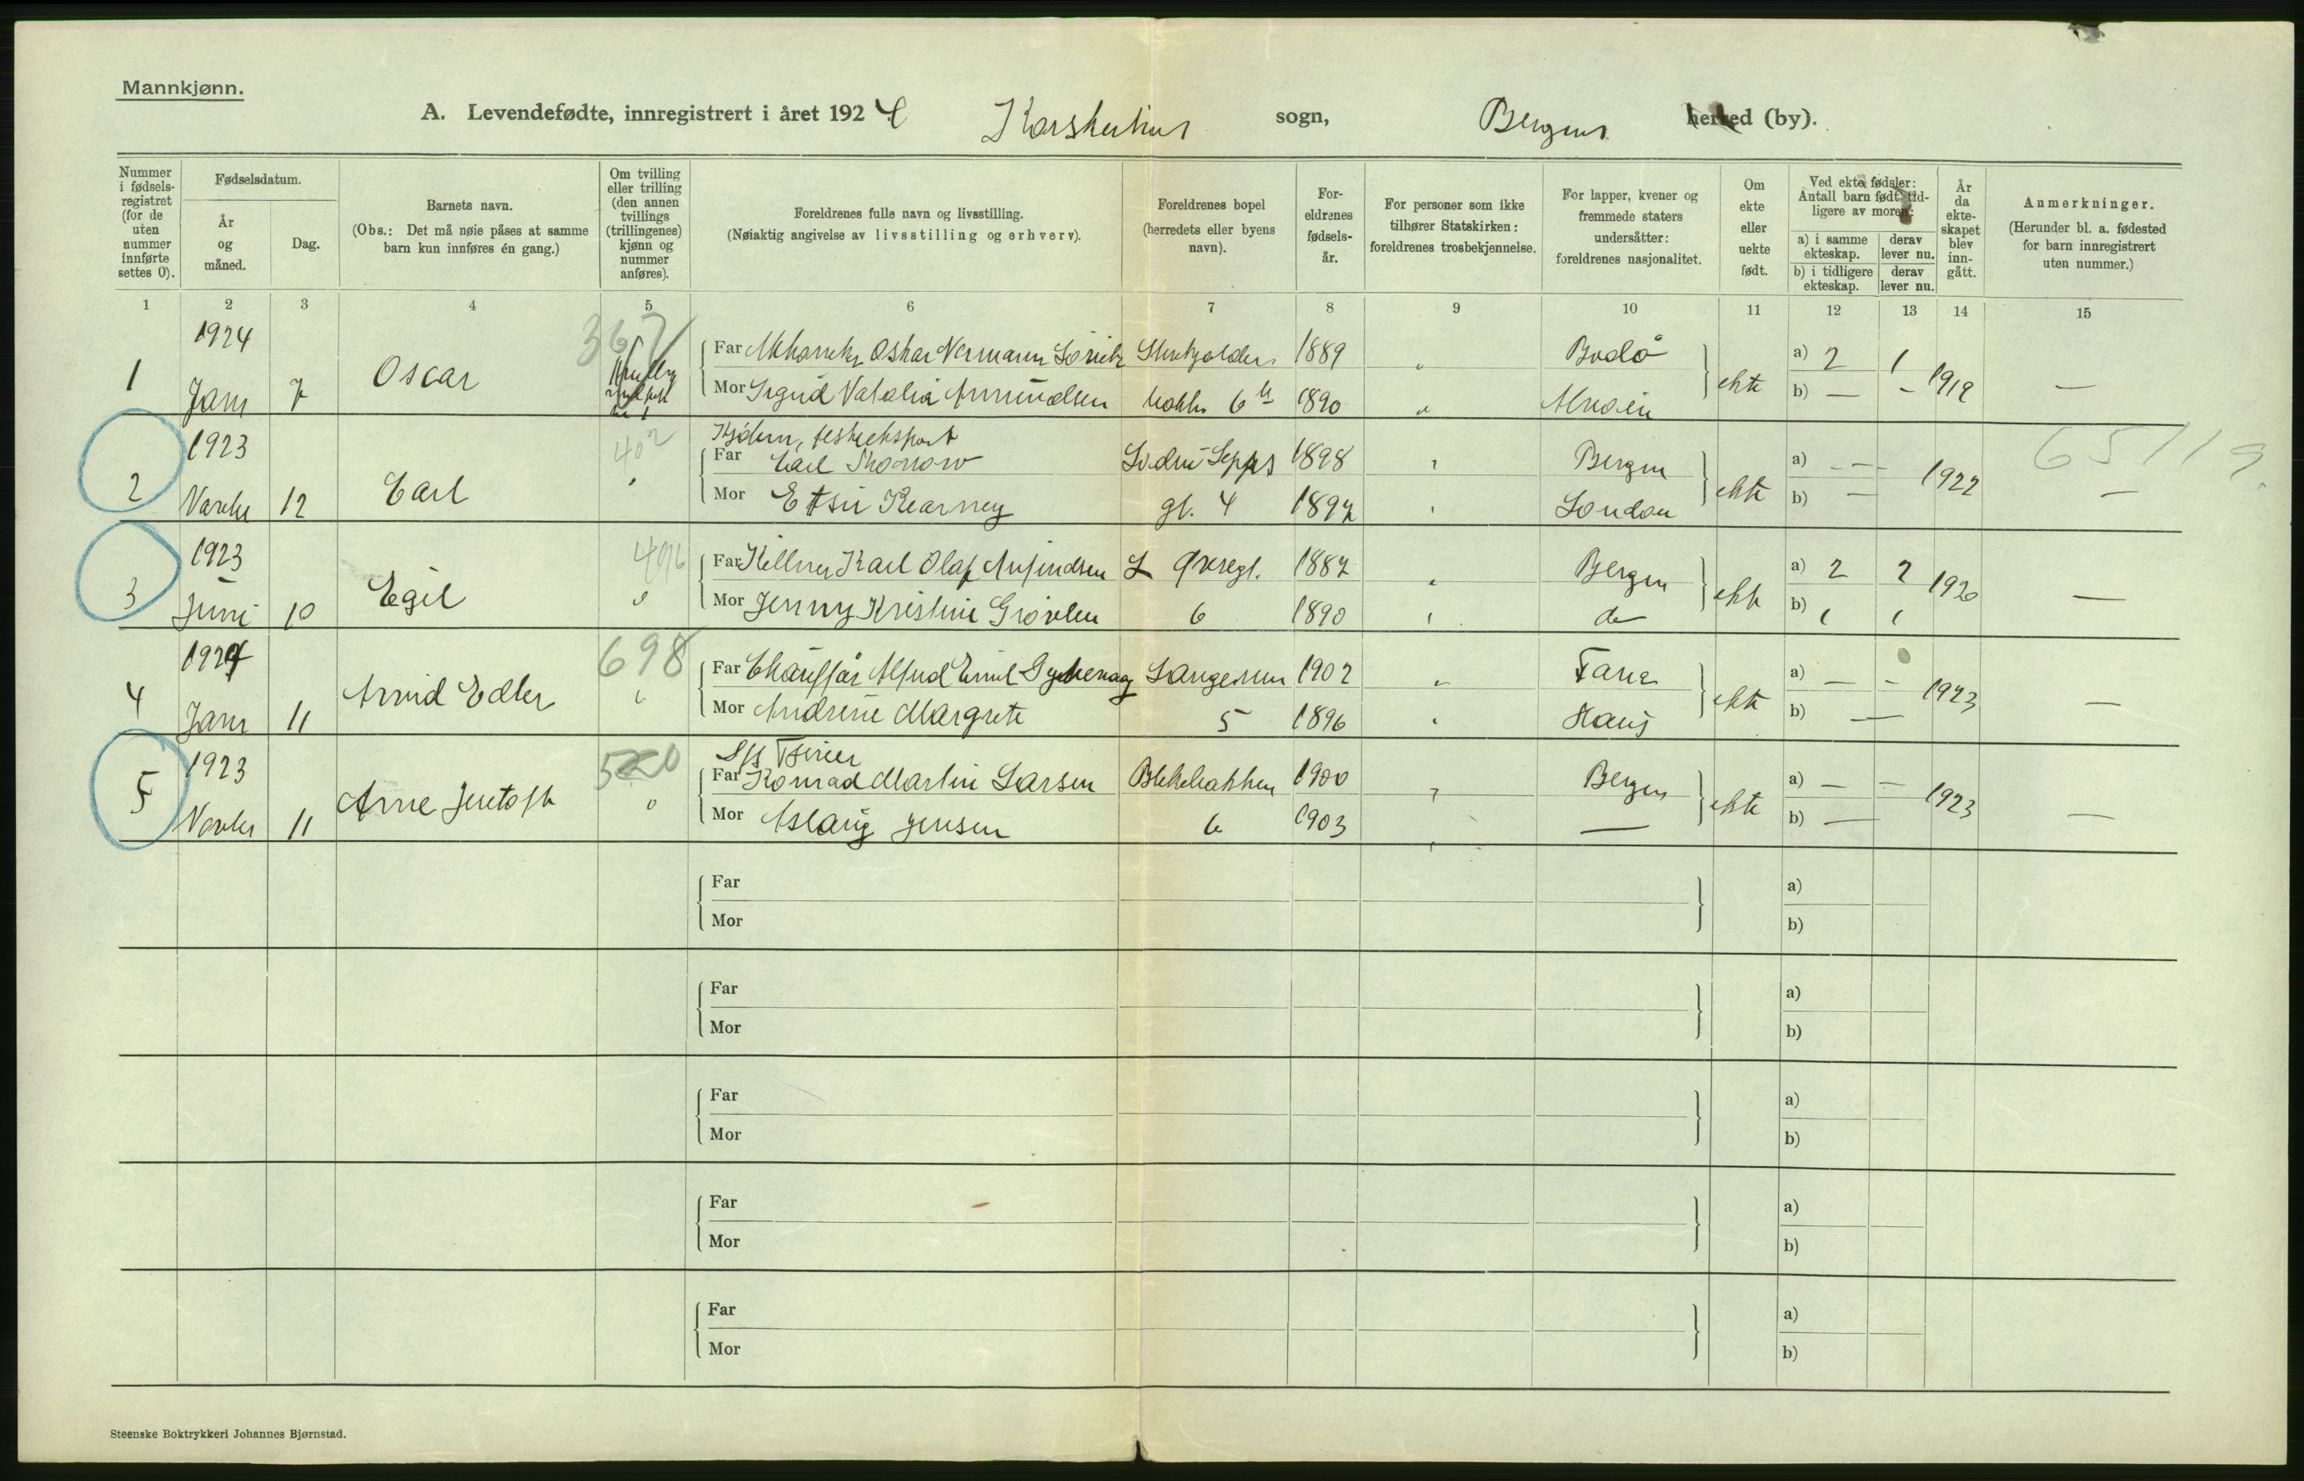 Mannkjønn.
A. Levendefødte, innregistrert i året 1924 Korskirken sogn, Bergens herred (by).
Nummer i fødselsregistret (for de uten nummer innførte settes 0).
Fødselsdatum.
År og måned.
Dag.
Barnets navn.
(Obs.: Det må nøie påses at samme barn kun innføres én gang.)
Om tvilling eller trilling (den annen tvillings (trillingenes) kjønn og nummer anføres).
Foreldrenes fulle navn og livsstilling.
(Nøiaktig angivelse av livsstilling og erhverv).
Foreldrenes bopel (herredets eller byens navn).
Foreldrenes fødselsår.
For personer som ikke tilhører Statskirken: foreldrenes trosbekjennelse.
For lapper, kvener og fremmede staters undersåtter: foreldrenes nasjonalitet.
Om ekte eller uekte født.
Ved ekte fødsler: Antall barn født tidligere av moren:
a) i samme ekteskap. derav lever nu.
b) i tidligere ekteskap. derav lever nu.
År da ekteskapet blev inngått.
Anmerkninger.
(Herunder bl. a. fødested for barn innregistrert uten nummer.)
1 2 3 4 5 6 7 8 9 10 11 12 13 14 15
1924 367
Far Oskar 1889 Bodø a) 2 1
1 Janr 7 Oscar ekte 1919 —
Mor Sigrid Natalia Amundsen 6 1890 b) — –
1923 402
Far Carl 1898 Bergen a) - — - 65119
2 Novbr 12 Carl ekte 1922 —
Mor Elsie Kearney gt. 4 1897 London b) —
1923 496
Far Kellner Karl Olaf Anfindsen Øvregt. 1887 Bergen a) 2 2
3 Juni 10 Egil ekte 1920 —
Mor Jenny Kristine Grøvlen 6 1890 do b) 1 1
1924 698
Far Chauffør Alfred Emil 1902 Fana a) — –
4 Janr 11 Arvid Edler ekte 1923 —
Mor Andrine Margrete 5 1896 Haus b) —
1923 520
Far Konrad Martin Larsen Blekebakken 1900 Bergen a) — —
5 Novbr 11 Arne ekte 1923 —
Mor Aslaug Jensen 6 1903 — b) —
Far a)
Mor b)
Far a)
Mor b)
Far a)
Mor b)
Far a)
Mor b)
Far a)
Mor b)
Steenske Boktrykkeri Johannes Bjørnstad.